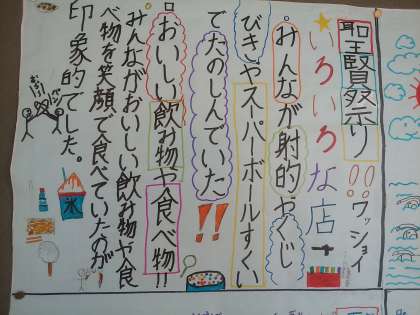 聖賢祭り!!ワッショイ
★いろいろな店
みんなが射的やくじ
びきやスーパーボールすくい
でたのしんでいた!!
おいしい飲み物や食べ物!!
みんながおいしい飲み物や食
べ物を笑顔で食べていたのが
印象的でした。
氷